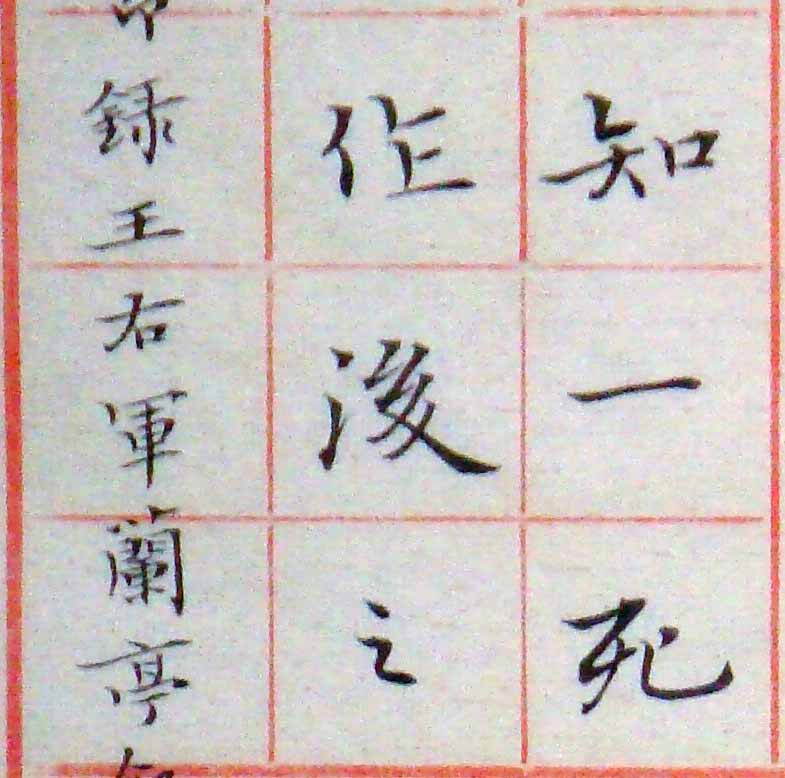 知一死
作後之
録王右軍蘭亭